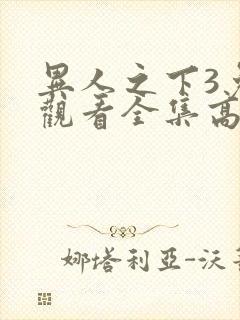 異人之下3免
觀看全集高
娜塔利亞-沃